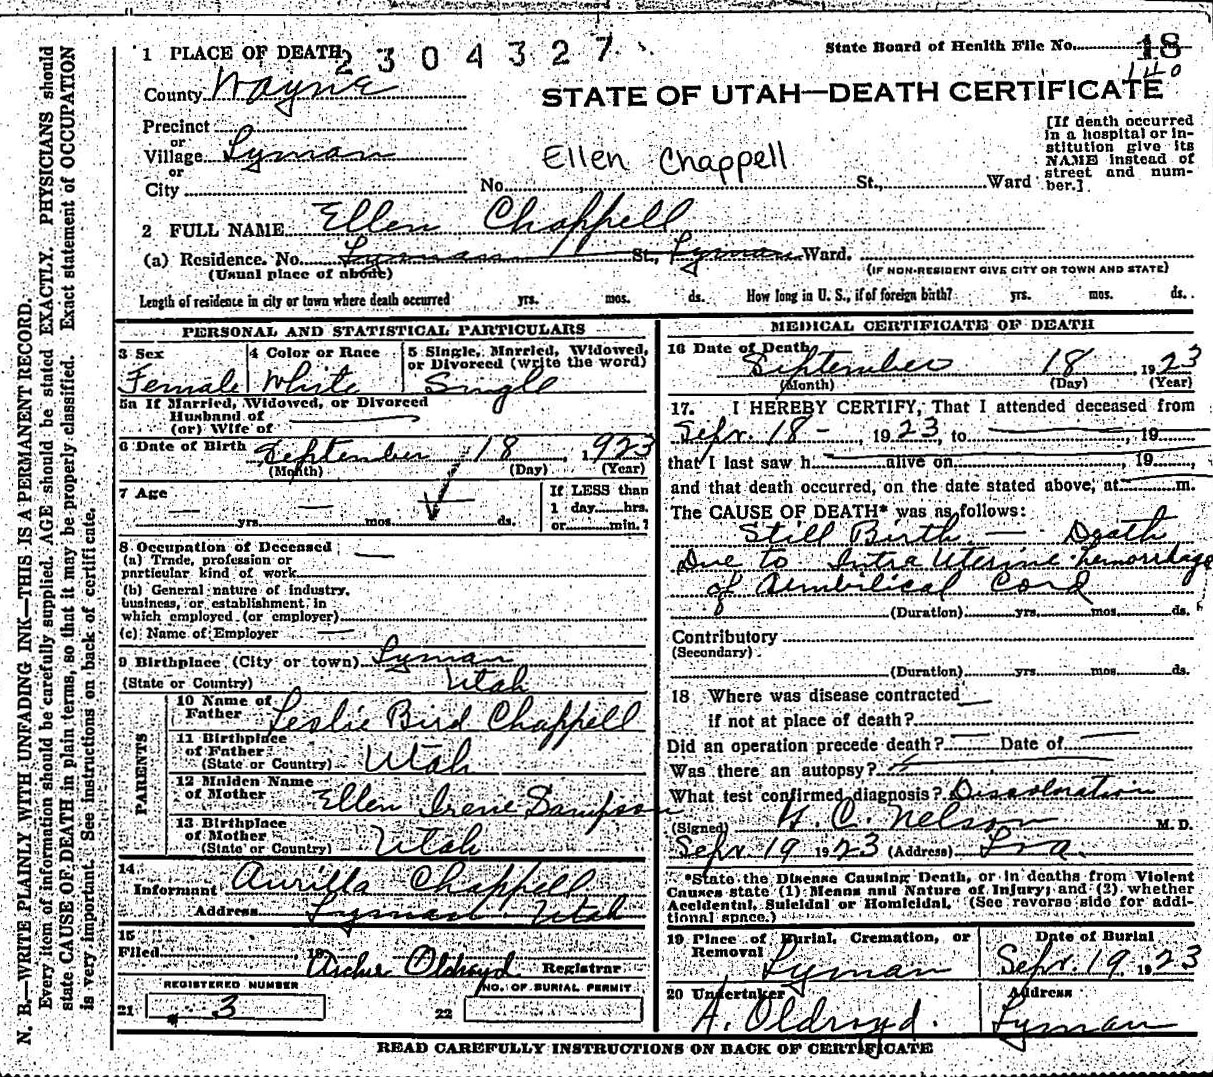 1 PLACE OF DEATH 2304327
State Board of Health File No. 18
140
County Wayne
STATE OF UTAH—DEATH CERTIFICATE
Precinct
or
Village Lyman
or
City
Ellen Chappell
No. St., Ward
[If death occurred
in a hospital or in-
stitution give its
NAME instead of
street and num-
ber.]
2 FULL NAME Ellen Chappell
(a) Residence. No. Lyman St., Lyman Ward.
(Usual place of abode)
(IF NON-RESIDENT GIVE CITY OR TOWN AND STATE)
Length of residence in city or town where death occurred yrs. mos. ds. How long in U. S., if of foreign birth? yrs. mos. ds.
PERSONAL AND STATISTICAL PARTICULARS
3 Sex
Female
4 Color or Race
White
5 Single, Married, Widowed,
or Divorced (write the word)
Single
5a If Married, Widowed, or Divorced
Husband of
(or) Wife of
6 Date of Birth September 18 1923
(Month) (Day) (Year)
7 Age
yrs. mos. ds.
If LESS than
1 day hrs.
or min.?
8 Occupation of Deceased
(a) Trade, profession or
particular kind of work
(b) General nature of industry,
business, or establishment in
which employed (or employer)
(c) Name of Employer
9 Birthplace (City or town) Lyman
(State or Country) Utah
PARENTS
10 Name of
Father Leslie Bird Chappell
11 Birthplace
of Father
(State or Country) Utah
12 Maiden Name
of Mother Ellen Irene Sampson
13 Birthplace
of Mother
(State or Country) Utah
14
Informant Aurilla Chappell
Address Lyman Utah
15
Filed 19 Archie Oldroyd Registrar
REGISTERED NUMBER
21 3
NO. OF BURIAL PERMIT
22
MEDICAL CERTIFICATE OF DEATH
16 Date of Death
September 18 1923
(Month) (Day) (Year)
17. I HEREBY CERTIFY, That I attended deceased from
Sept. 18 - , 1923, to , 19
that I last saw h alive on , 19 ,
and that death occurred, on the date stated above, at m.
The CAUSE OF DEATH* was as follows:
Still Birth — Death
Due to Intra Uterine hemorrhage
of Aumbilical Cord
(Duration) yrs. mos. ds.
Contributory
(Secondary)
(Duration) yrs. mos. ds.
18 Where was disease contracted
if not at place of death?
Did an operation precede death? Date of
Was there an autopsy?
What test confirmed diagnosis?
(Signed) H. C. Nelson M. D.
Sept. 19 1923 (Address)
*State the Disease Causing Death, or in deaths from Violent
Causes state (1) Means and Nature of Injury; and (2) whether
Accidental, Suicidal or Homicidal. (See reverse side for addi-
tional space.)
19 Place of Burial, Cremation, or
Removal
Lyman
Date of Burial
Sept. 19 1923
20 Undertaker
A. Oldroyd.
Address
Lyman
READ CAREFULLY INSTRUCTIONS ON BACK OF CERTIFICATE
N. B.—WRITE PLAINLY WITH UNFADING INK—THIS IS A PERMANENT RECORD.
Every item of information should be carefully supplied. AGE should be stated EXACTLY. PHYSICIANS should
state CAUSE OF DEATH in plain terms, so that it may be properly classified. Exact statement of OCCUPATION
is very important. See instructions on back of certificate.